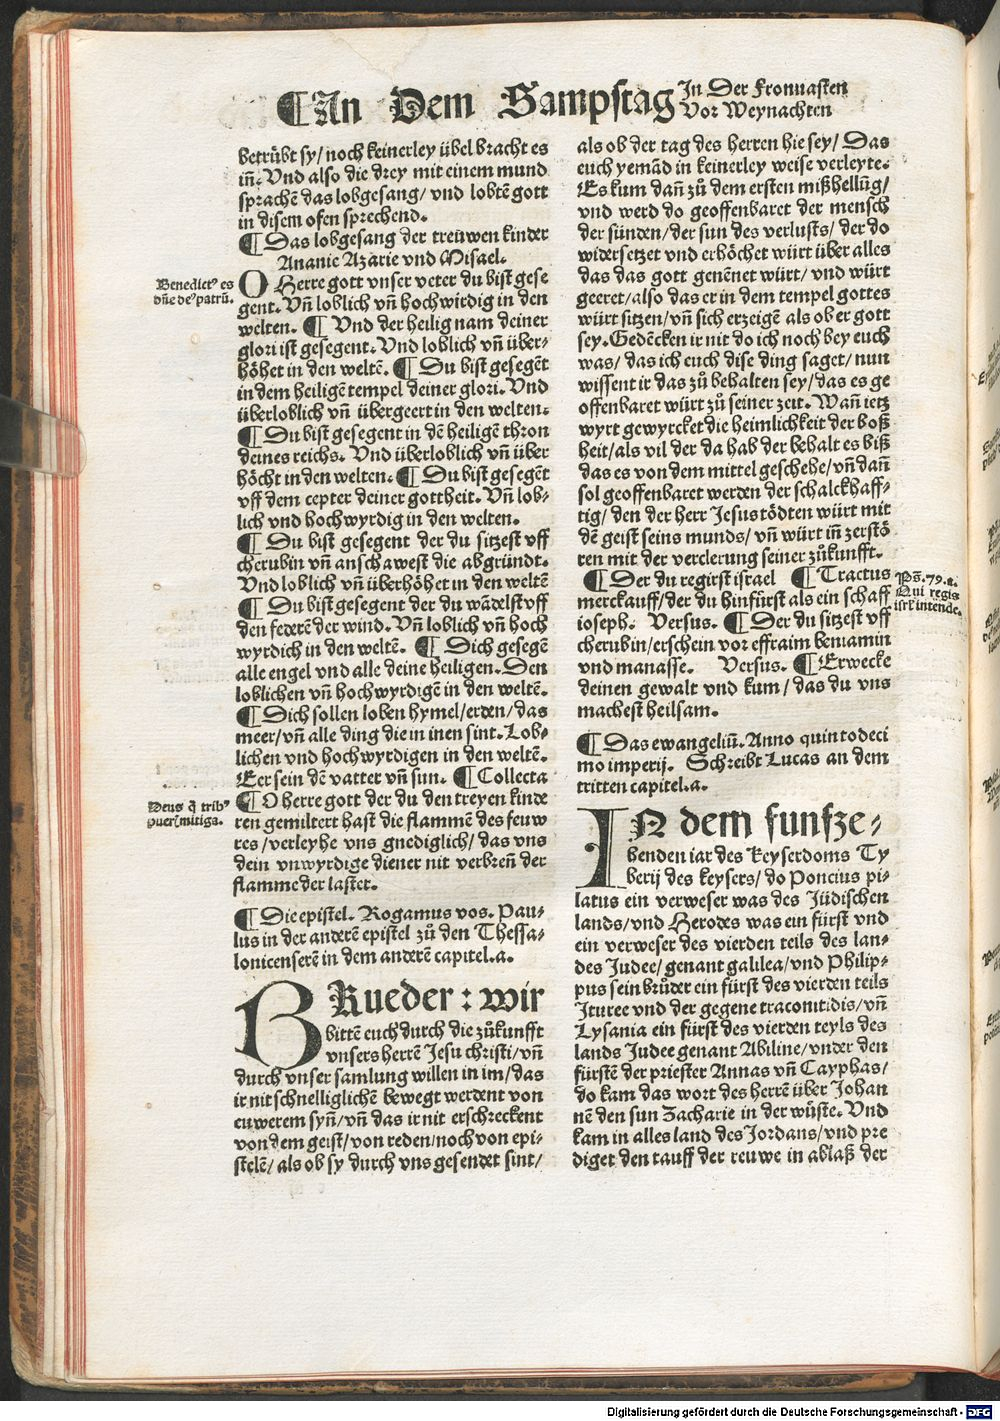 ¶ An Dem Sampstag In Der Fronuasten
Vor Weynachten
betrůbt sy/ noch keinerley übel bracht es
in̄. Vnd also die drey mit einem mund
sprachē das lobgesang/ vnd lobtē gott
in disem ofen sprechend.
¶ Das lobgesang der treüwen kinder
Ananie Azarie vnd Misael.
Benedictꝰ es
dn̄e deꝰ patrū.
O Herre gott vnser veter du bist gese
gent. Vn̄ loblich vn̄ hochwirdig in den
welten. ¶ Vnd der heilig nam deiner
glori ist gesegent. Vnd loblich vn̄ über-
höhet in den weltē. ¶ Du bist gesegēt
in dem heiligē tempel deiner glori. Vnd
überloblich vn̄ übergeert in den welten.
¶ Du bist gesegent in dē heiligē thron
deines reichs. Vnd überloblich vn̄ über
höcht in den welten. ¶ Du bist gesegēt
vff dem cepter deiner gottheit. Vn̄ lob-
lich vnd hochwyrdig in den welten.
¶ Du bist gesegent der du sitzest vff
cherubin vn̄ anschawest die abgründt.
Vnd loblich vn̄ überhöhet in den weltē
¶ Du bist gesegent der du wādelst vff
den federē der wind. Vn̄ loblich vn̄ hoch
wyrdich in den weltē. ¶ Dich gesegē
alle engel vnd alle deine heiligen. Den
loblichen vn̄ hochwyrdigē in den weltē.
¶ Dich sollen loben hymel/ erden/ das
meer/ vn̄ alle ding die in inen sint. Lob-
lichen vnd hochwyrdigen in den weltē.
Eer sein dē vatter vn̄ sun. ¶ Collecta
Deus q̄ tribꝰ
puerꝭ mitiga.
¶ O herre gott der du den treyen kinde
ren gemiltert hast die flammē des feuw
res/ verleyhe vns gnediglich/ das vns
dein vnwyrdige diener nit verbren̄ der
flamme der laster.
¶ Die epistel. Rogamus vos. Pau-
lus in der anderē epistel zů den Thessa-
lonicenserē in dem anderē capitel.a.
BRueder: wir
bittē euch durch die zůkunfft
vnsers herrē Jesu christi/ vn̄
durch vnser samlung willen in im/ das
ir nit schnelliglichē bewegt werdent von
euwerem syn̄/ vn̄ das ir nit erschreckent
von dem geist/ von reden/ noch von epi-
stelē/ als ob sy durch vns gesendet sint/
als ob der tag des herren hie sey/ Das
euch yemād in keinerley weise verleyte.
Es kum dan̄ zů dem ersten mißhellūg/
vnd werd do geoffenbaret der mensch
der sünden/ der sun des verlusts/ der do
widersetzet vnd erhöchet würt über alles
das das gott genēnet würt/ vnd würt
geeret/ also das er in dem tempel gottes
würt sitzen/ vn̄ sich erzeigē als ob er gott
sey. Gedēcken ir nit do ich noch bey euch
was/ das ich euch dise ding saget/ nun
wissent ir das zů behalten sey/ das es ge
offenbaret würt zů seiner zeit. Wan̄ ietz
wyrt gewyrcket die heimlichkeit der boß
heit/ als vil der da hab der behalt es biß
das es von dem mittel geschehe/ vn̄ dan̄
sol geoffenbaret werden der schalckhaff-
tig/ den der herr Jesus tödten würt mit
dē geist seins munds/ vn̄ würt in̄ zerstö
ren mit der verclerung seiner zůkunfft.
¶ Der du regirst israel ¶ Tractus
Ps̄. 79. a.
Qui regis
isrl̄ intende.
merckauff/ der du hinfürst als ein schaff
ioseph. Versus. ¶ Der du sitzest vff
cherubin/ erschein vor effraim beniamin
vnd manasse. Versus. ¶ Erwecke
deinen gewalt vnd kum/ das du vns
machest heilsam.
¶ Das ewangeliū. Anno quintodeci
mo imperij. Schreibt Lucas an dem
tritten capitel.a.
IN dem funfze-
henden iar des keyserdoms Ty
berij des keysers/ do Poncius pi-
latus ein verweser was des Jüdischen
lands/ vnd Herodes was ein fürst vnd
ein verweser des vierden teils des lan-
des Judee/ genant galilea/ vnd Philip-
pus sein brůder ein fürst des vierden teils
Ituree vnd der gegene traconitidis/ vn̄
Lysania ein fürst des vierden teyls des
lands Judee genant Abiline/ vnder den
fürstē der priester Annas vn̄ Cayphas/
do kam das wort des herrē über Johan
nē den sun Zacharie in der wüste. Vnd
kam in alles land des Jordans/ vnd pre
diget den tauff der reuwe in ablaß der
Digitalisierung gefördert durch die Deutsche Forschungsgemeinschaft - DFG